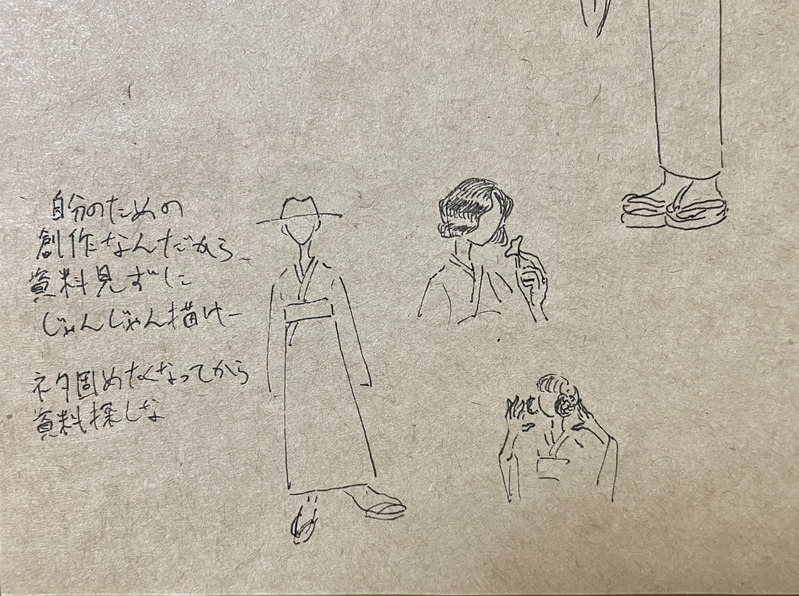 自分のための
創作なんだから
資料見ずに
じゃんじゃん描けー
ネタ固めたくなってから
資料探しな